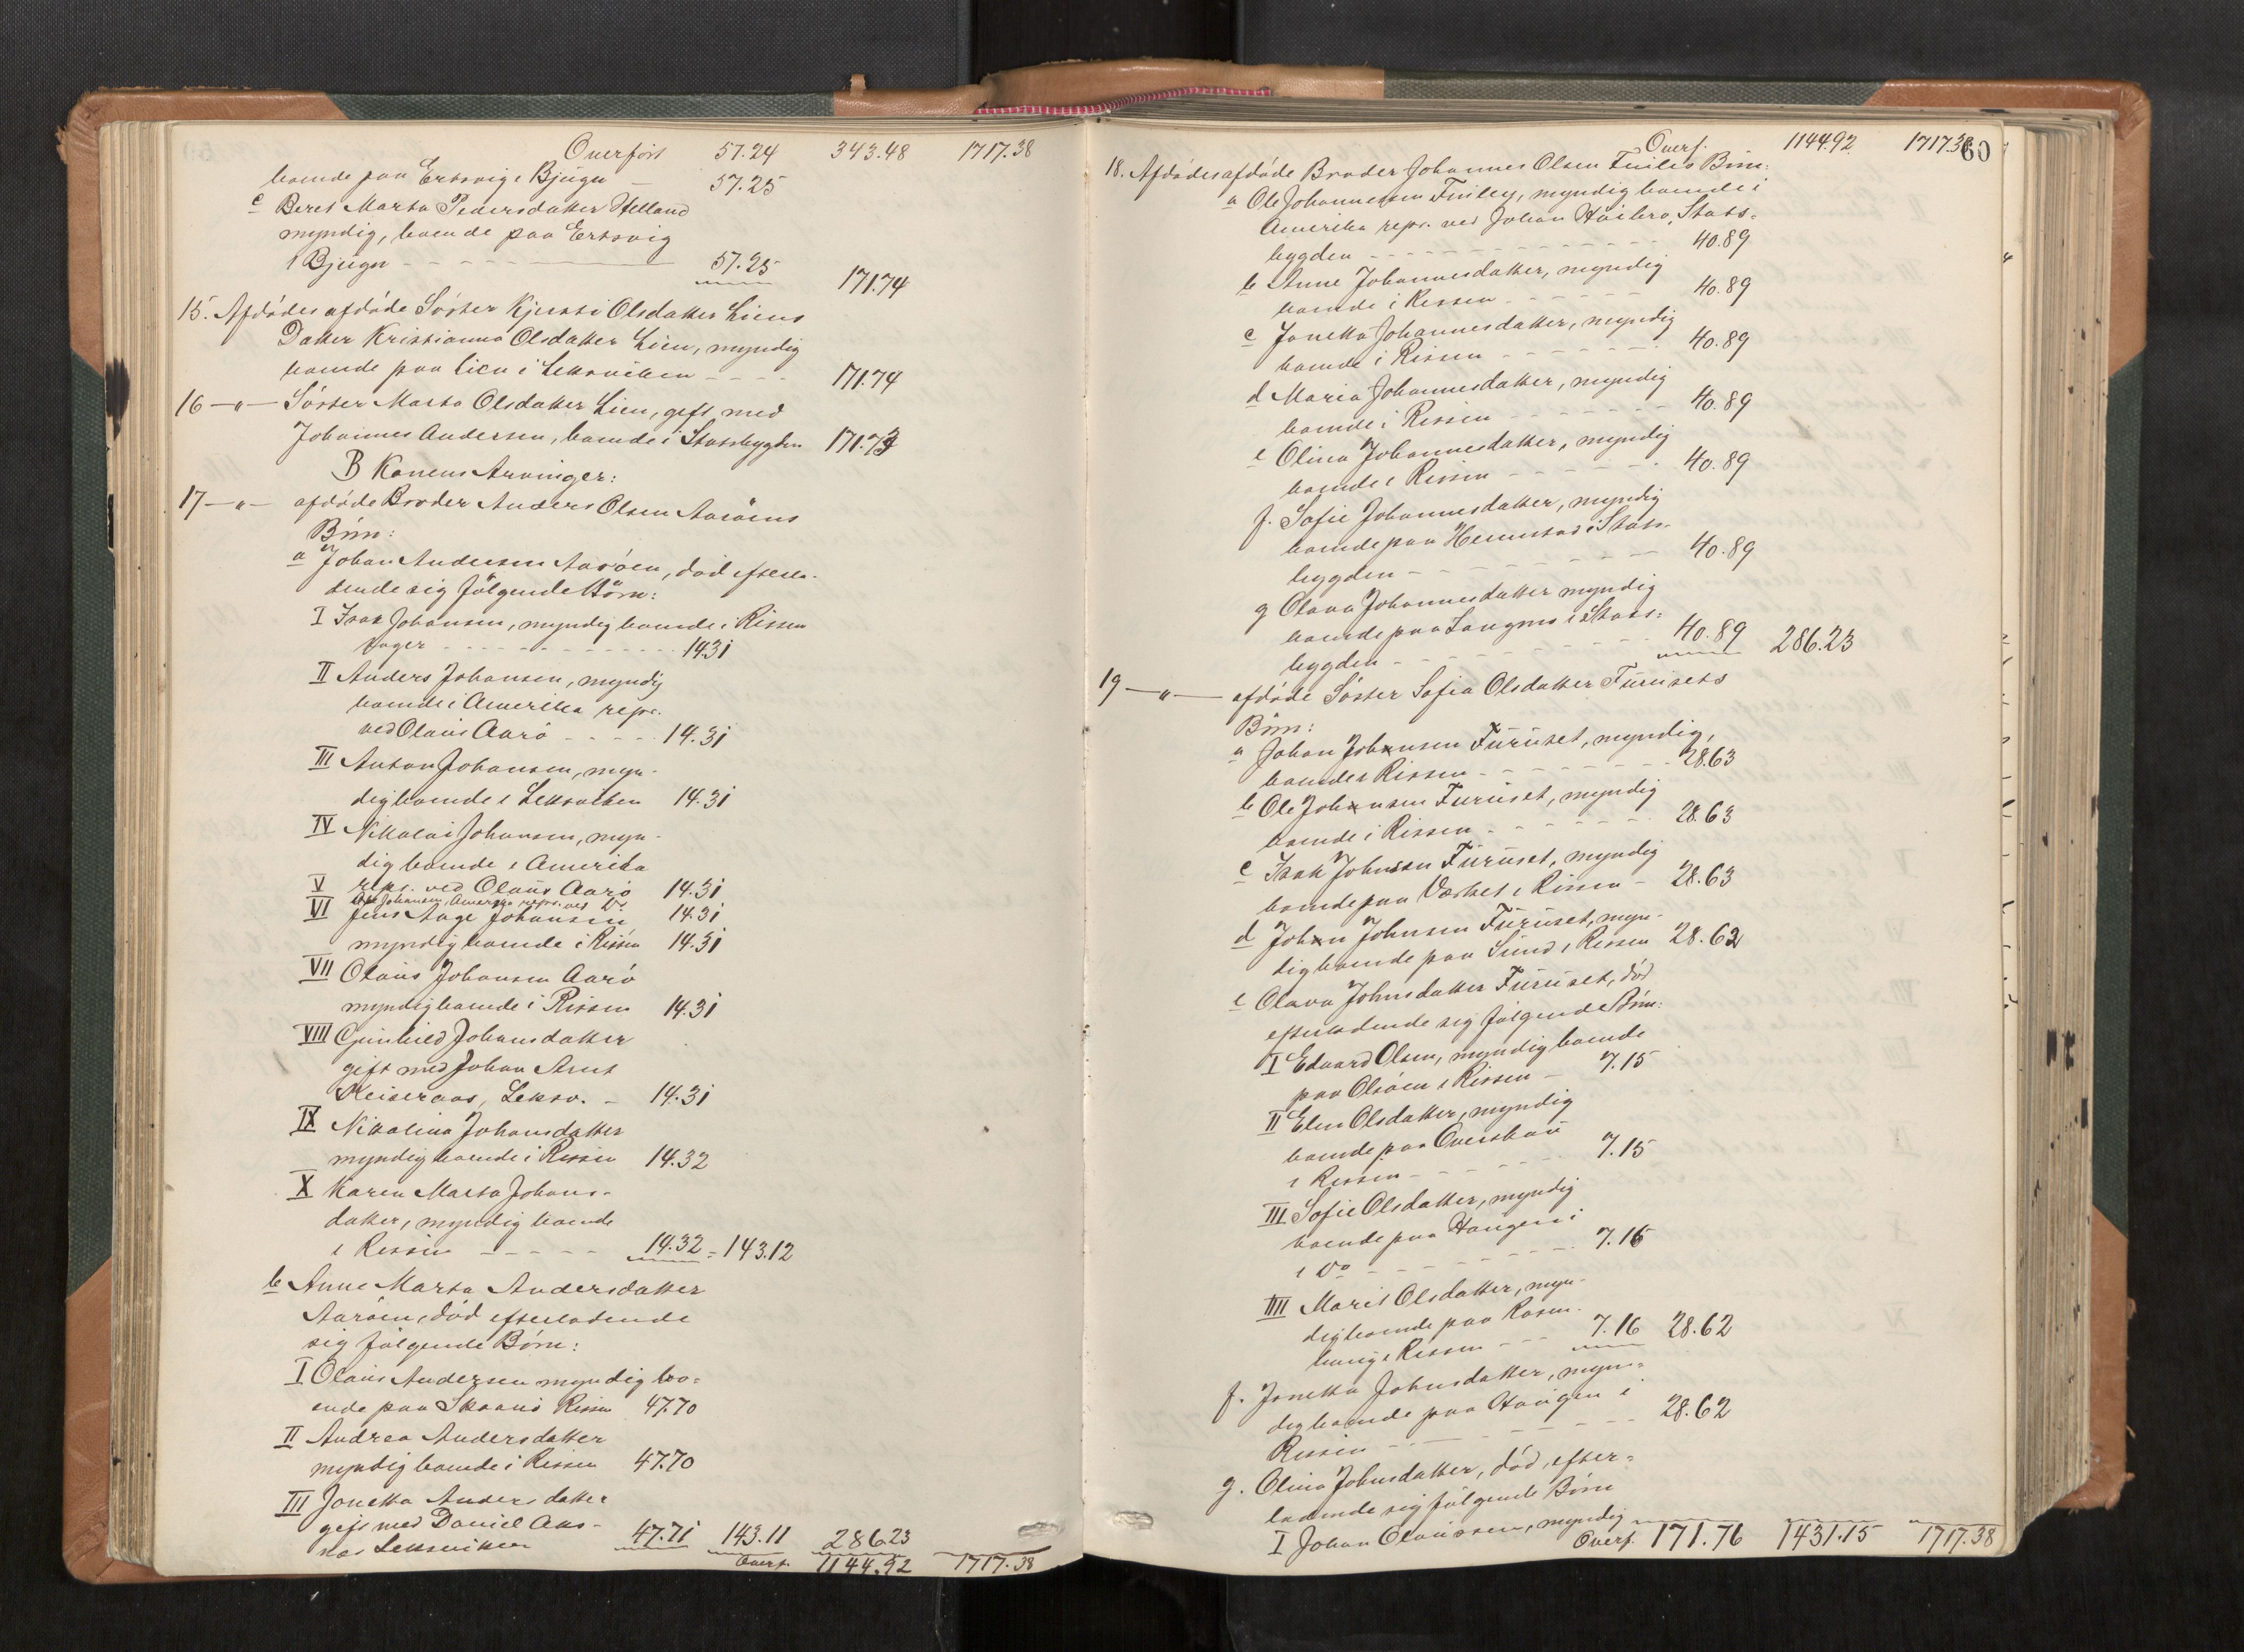 Overført 57.24 343.48 1717.38
boende paa Ertsvig i Bjugn — 57.25
c Beret Marta Pedersdatter Helland
myndig, boende paa Ertsvig
i Bjugn - - - - 57.25 171.74
15. Afdødes afdøde Søster Kjersti Olsdatter Liens
Datter Kristianna Olsdatter Lien, myndig
boende paa Lien i Leksviken - - - - 171.74
16 —"— Søster Marta Olsdatter Lien, gift med
Johannes Andersen, boende i Stadsbygden 171.73
B Konens Arvinger:
17 —"— afdøde Broder Anders Olsen Aarøens
Børn:
a Johan Andersen Aarøen, død efterla-
dende sig følgende Børn:
I Isak Johansen, myndig boende i Rissen
- - - - - - 14.31
II Anders Johansen, myndig
boende i Amerika repr.
ved Olaus Aarø - - - - 14.31
III Anton Johansen, myn-
dig boende i Leksviken 14.31
IV Nikolai Johansen, myn-
dig boende i Amerika
repr. ved Olaus Aarø 14.31
V Johansen, Amerika repr. ved Do 14.31
VI Jens Aage Johansen
myndig boende i Rissen 14.31
VII Olaus Johansen Aarø
myndig boende i Rissen 14.31
VIII Gunhild Johansdatter
gift med Johan Arnt
Keiseraas, Leksv. - 14.31
IX Nikolina Johansdatter
myndig boende i Rissen 14.32
X Karen Marta Johans-
datter, myndig boende
i Rissen - - - - - 14.32 = 143.12
b Anne Marta Andersdatter
Aarøen, død efterladende
sig følgende Børn:
I Olaus Andersen myndig bo-
ende paa i Rissen 47.70
II Andrea Andersdatter
myndig boende i Rissen 47.70
III Jonetta Andersdatter
gift med Daniel Aas-
Leksviken 47.71 143.11 286.23
Overf. 1144.92 1717.38
Overf. 1144.92 1717.38
60
18. Afdødes afdøde Broder Johannes Olsen Børn:
a Ole Johannessen, myndig boende i
Amerika repr. ved Johan Haibro, Stads-
bygden - - - - - 40.89
b Anne Johannesdatter, myndig
boende i Rissen - - - - 40.89
c Jonetta Johannesdatter, myndig
boende i Rissen - - - - 40.89
d Maria Johannesdatter, myndig
boende i Rissen - - - - 40.89
e Olina Johannesdatter, myndig
boende i Rissen - - - - 40.89
f. Sofie Johannesdatter, myndig
boende paa Hemmstad i Stads-
bygden - - - - 40.89
g Olava Johannesdatter myndig
boende paa Langmo i Stads-
bygden - - - - 40.89 286.23
19 —"— afdøde Søster Sofia Olsdatter Furusets
Børn:
a Johan Johnsen Furuset, myndig,
boende i Rissen - - - - 28.63
b Ole Johnsen Furuset, myndig
boende i Rissen - - - - 28.63
c Isak Johnsen Furuset, myndig
boende paa Værket i Rissen - 28.63
d John Johnsen Furuset, myn-
dig boende paa Sund i Rissen 28.62
e Olava Johnsdatter Furuset, død
efterladende sig følgende Børn:
I Edvard Olsen, myndig boende
paa Olsøen i Rissen - 7.15
II Elen Olsdatter, myndig
boende paa Overskau
i Rissen - - - - 7.15
III Sofie Olsdatter, myndig
boende paa Haugen i
i Do - - - - 7.16
IIII Marit Olsdatter, myn-
dig boende paa Rosen-
i Rissen - - 7.16 28.62
f. Jonetta Johnsdatter, myn-
dig boende paa Haugen i
Rissen - - - - 28.62
g. Olina Johnsdatter, død, efter-
ladende sig følgende Børn
I Johan Olaussen, myndig
Overf. 171.76 1431.15 1717.38